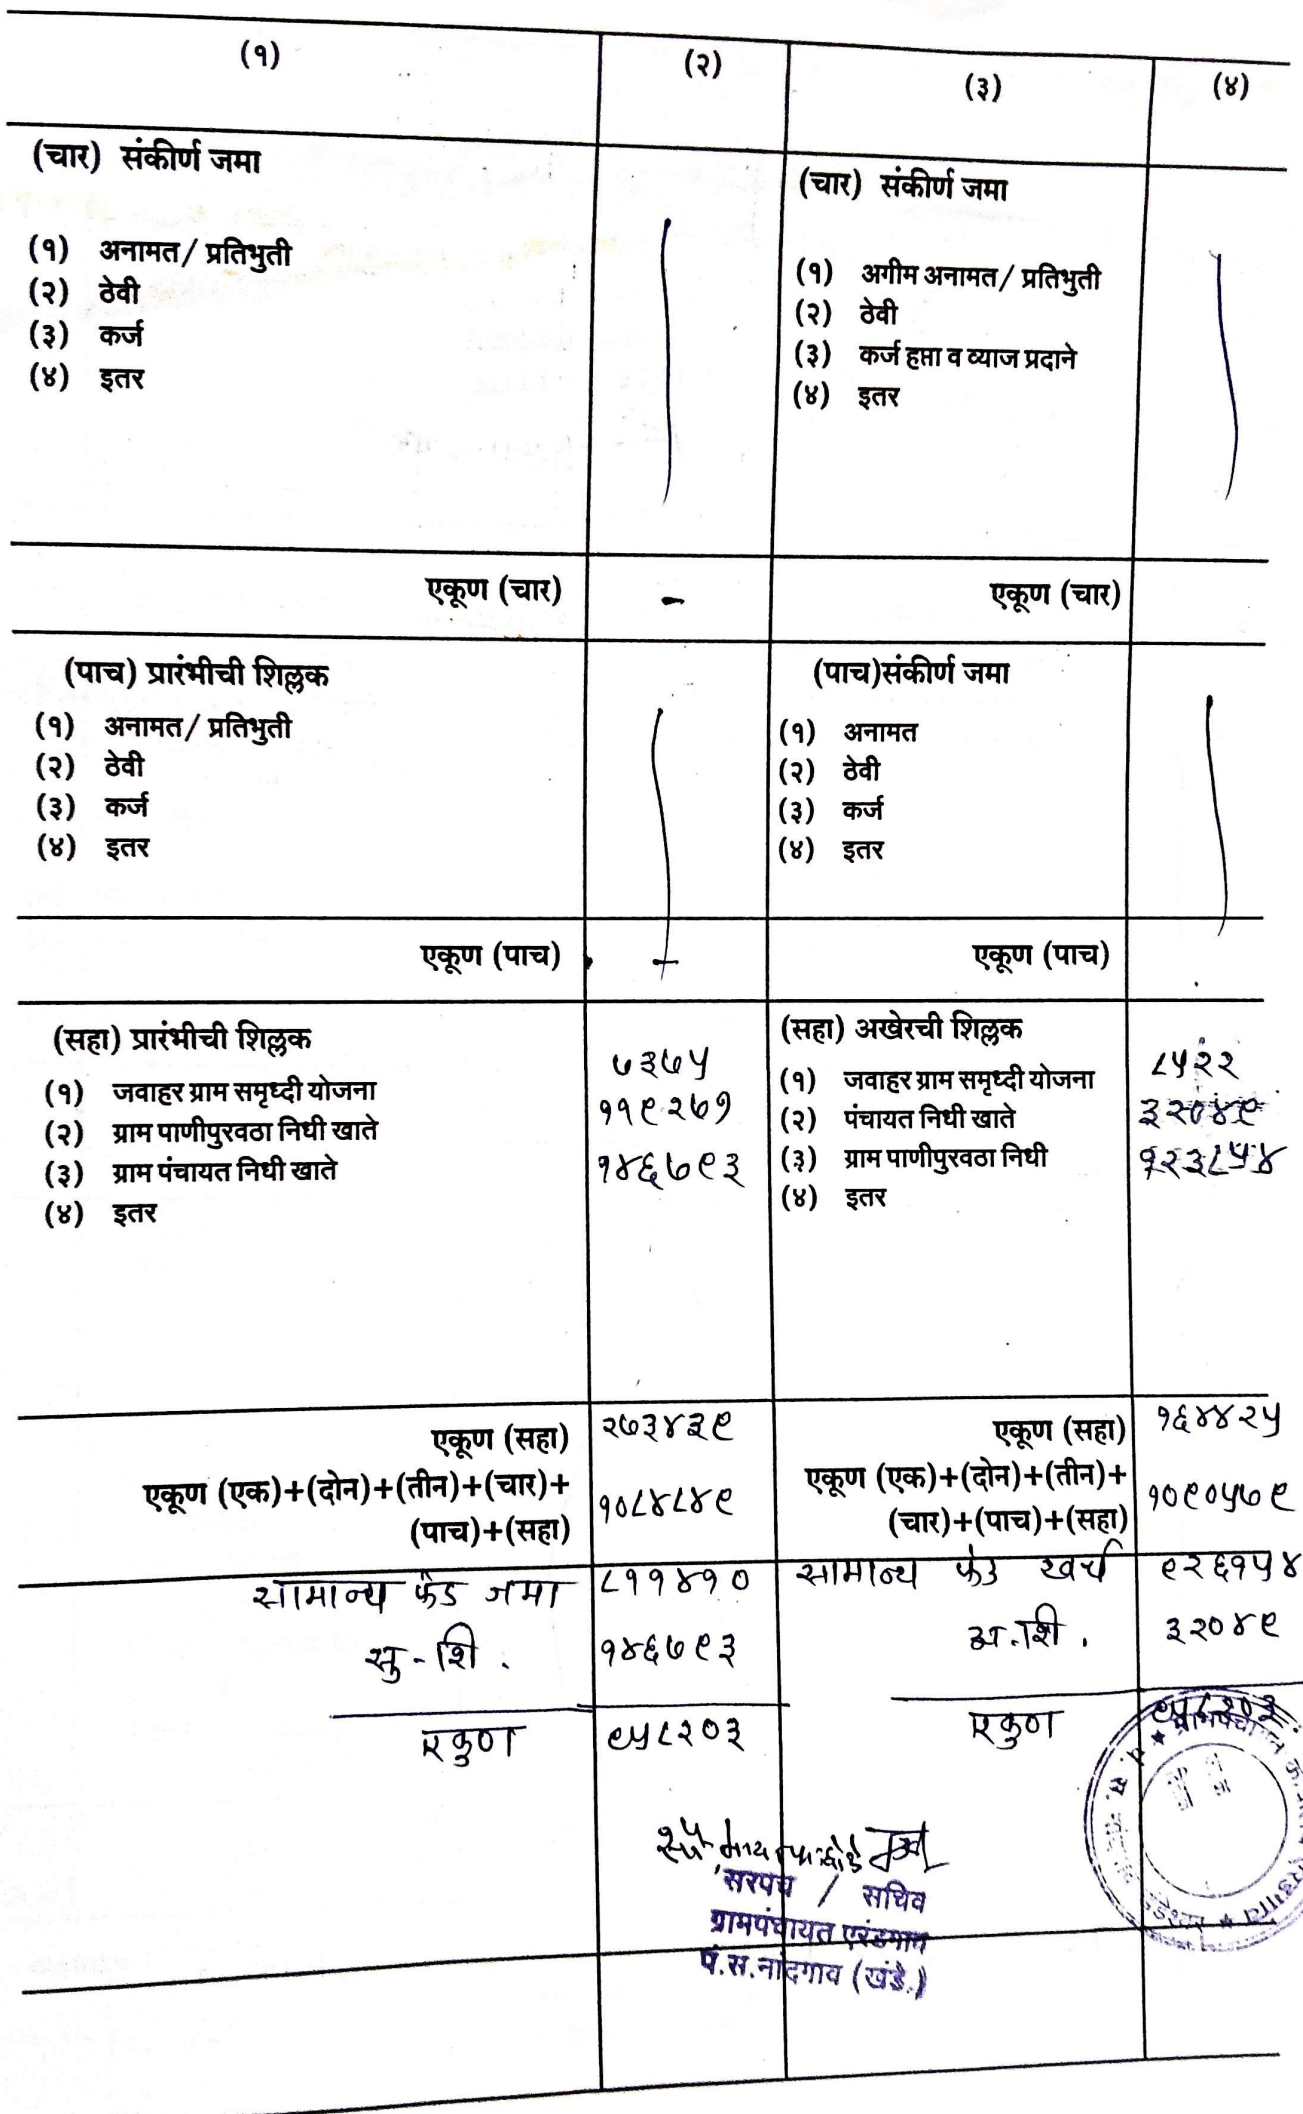 (१) (२) (३) (४)
(चार) संकीर्ण जमा
(१) अनामत/ प्रतिभुती
(२) ठेवी
(३) कर्ज
(४) इतर
(चार) संकीर्ण जमा
(१) अगीम अनामत/ प्रतिभुती
(२) ठेवी
(३) कर्ज हप्ता व व्याज प्रदाने
(४) इतर
एकूण (चार) - एकूण (चार)
(पाच) प्रारंभीची शिल्लक
(१) अनामत/ प्रतिभुती
(२) ठेवी
(३) कर्ज
(४) इतर
(पाच)संकीर्ण जमा
(१) अनामत
(२) ठेवी
(३) कर्ज
(४) इतर
एकूण (पाच) एकूण (पाच)
(सहा) प्रारंभीची शिल्लक
(१) जवाहर ग्राम समृध्दी योजना ७३७५
(२) ग्राम पाणीपुरवठा निधी खाते ११९२७१
(३) ग्राम पंचायत निधी खाते १४६७९३
(४) इतर
(सहा) अखेरची शिल्लक
(१) जवाहर ग्राम समृध्दी योजना ८५२२
(२) पंचायत निधी खाते ३२०४९
(३) ग्राम पाणीपुरवठा निधी १२३८५४
(४) इतर
एकूण (सहा) २७३४३९
एकूण (एक)+(दोन)+(तीन)+(चार)+
(पाच)+(सहा) १०८४८४९
एकूण (सहा) १६४४२५
एकूण (एक)+(दोन)+(तीन)+
(चार)+(पाच)+(सहा) १०९०५७९
सामान्य फंड जमा ८११४१० सामान्य फंड खर्च ९२६१५४
सु-शि. १४६७९३ अ.शि. ३२०४९
एकुण ९५८२०३ एकुण ९५८२०३
सरपंच / सचिव
ग्रामपंचायत एरंडगाव
पं.स.नांदगाव (खंडे.)